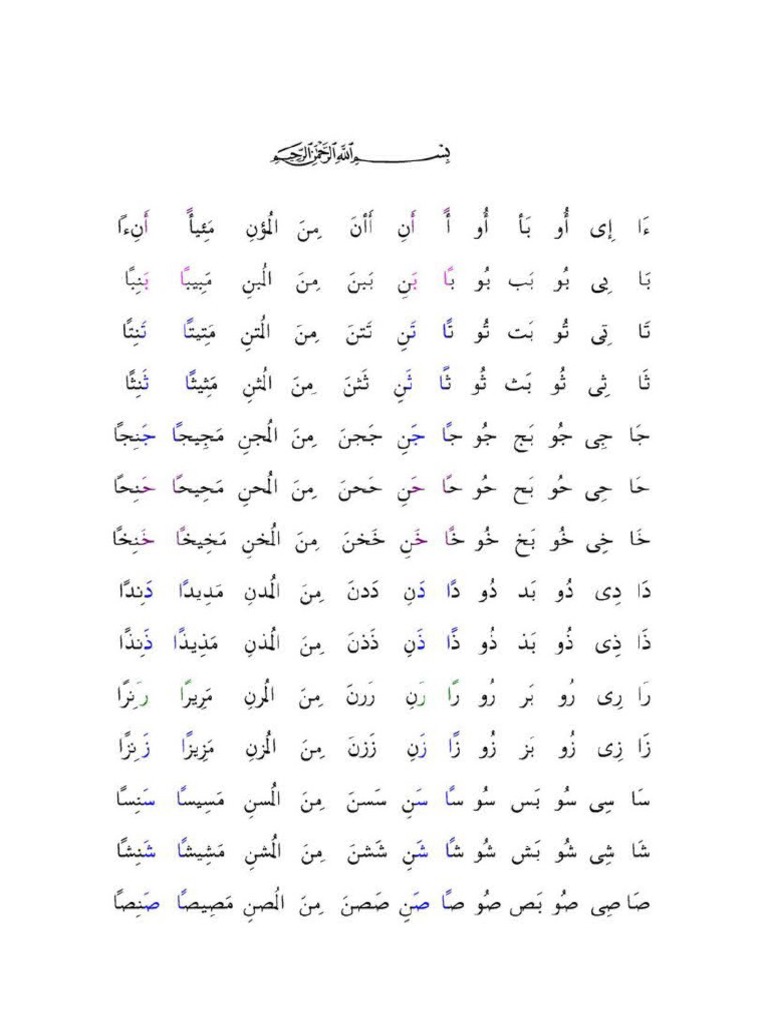 بِسْمِ ٱللَّهِ ٱلرَّحْمَٰنِ ٱلرَّحِيمِ
ءَا إِى أُو بَأ أُو أً أَنِ أَأنَ مِنَ الُمؤنِ مَئِيأً أَنِءًا
بَا بِى بُو بَب بُو بًا بَنِ بَبنَ مِنَ الُمبنِ مَبِيبًا بَنِبًا
تَا تِى تُو بَت تُو تًا تَنِ تَتنَ مِنَ الُمتنِ مَتِيتًا تَنِتًا
ثَا ثِى ثُو بَث ثُو ثًا ثَنِ ثَثنَ مِنَ الُمثنِ مَثِيثًا ثَنِثًا
جَا جِى جُو بَج جُو جًا جَنِ جَجنَ مِنَ الُمجنِ مَجِيجًا جَنِجًا
حَا حِى حُو بَح حُو حًا حَنِ حَحنَ مِنَ الُمحنِ مَحِيحًا حَنِحًا
خَا خِى خُو بَخ خُو خًا خَنِ خَخنَ مِنَ الُمخنِ مَخِيخًا خَنِخًا
دَا دِى دُو بَد دُو دًا دَنِ دَدنَ مِنَ الُمدنِ مَدِيدًا دَنِدًا
ذَا ذِى ذُو بَذ ذُو ذًا ذَنِ ذَذنَ مِنَ الُمذنِ مَذِيذًا ذَنِذًا
رَا رِى رُو بَر رُو رًا رَنِ رَرنَ مِنَ الُمرنِ مَرِيرًا رَنِرًا
زَا زِى زُو بَز زُو زًا زَنِ زَزنَ مِنَ الُمزنِ مَزِيزًا زَنِزًا
سَا سِى سُو بَس سُو سًا سَنِ سَسنَ مِنَ الُمسنِ مَسِيسًا سَنِسًا
شَا شِى شُو بَش شُو شًا شَنِ شَشنَ مِنَ الُمشنِ مَشِيشًا شَنِشًا
صَا صِى صُو بَص صُو صًا صَنِ صَصنَ مِنَ الُمصنِ مَصِيصًا صَنِصًا